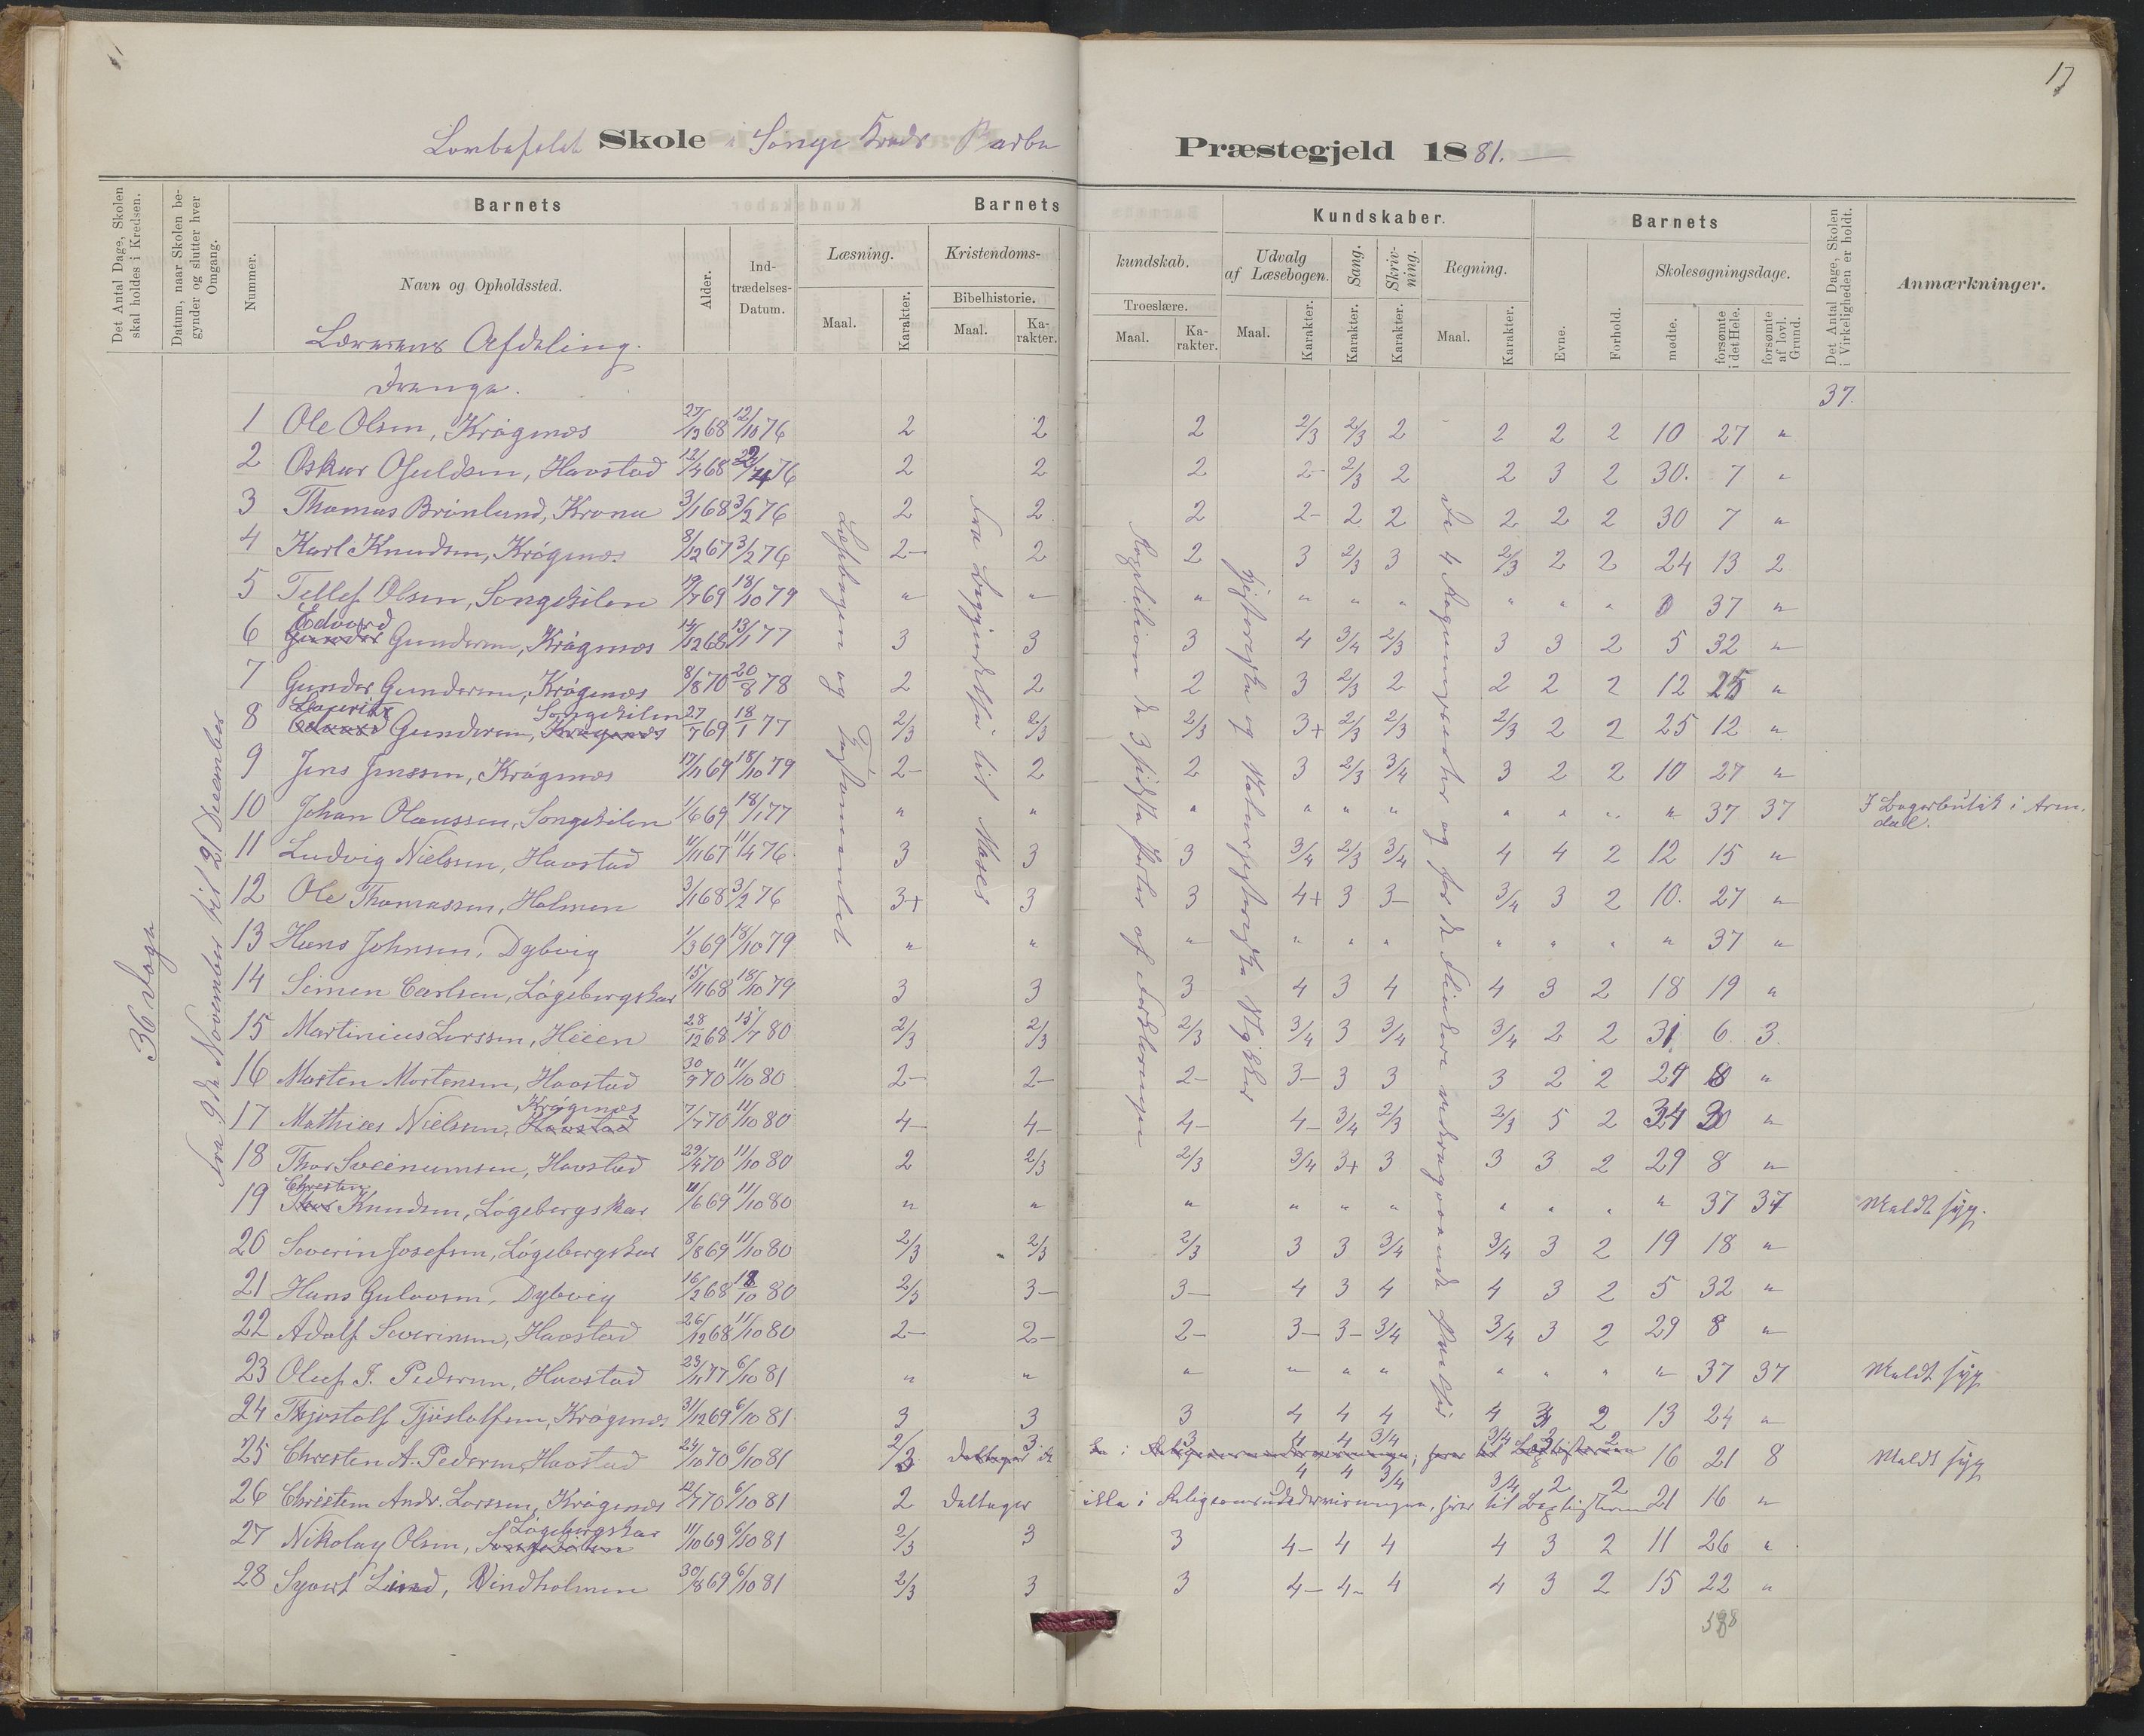 17
Skole i Songe Kreds Barbu Præstegjeld 1881.
Det Antal Dage, Skolen skal holdes i Kredsen.
Datum, naar Skolen begynder og slutter hver Omgang.
Barnets
Barnets Kundskaber.
Barnets
Det Antal Dage, Skolen i Virkeligheden er holdt.
Anmærkninger.
Nummer.
Navn og Opholdssted.
Alder.
Ind-trædelses-Datum.
Læsning.
Kristendoms-kundskab.
Udvalg af Læsebogen.
Sang.
Skriv-ning.
Regning.
Evne.
Forhold.
Skolesøgningsdage.
Bibelhistorie.
Troeslære.
Maal. Karakter. Maal. Ka-rakter. Maal. Ka-rakter. Maal. Karakter. Karakter. Karakter. Maal. Karakter.
mødte. forsømte i det Hele. forsømte af lovl. Grund.
Lærerens Afdeling.
Drenge.
37.
36 Dage
Fra 9de November til 21 December
Læsebogen og Testamentet
Fra Begyndelsen til Moses
Repetition de 3 sidste Parter af Forklaringen
Historiske og Naturhistoriske Stykker
De 4 Regningsarter og for de flinkere vedkommende
1 Ole Olsen, Krøgenæs 27/12 68 12/10 76 2 2 2 2/3 2/3 2 2 2 2 10 27 "
2 Oskar Osuldsen, Havstad 12/4 68 76 2 2 2 2- 2/3 2 2 3 2 30. 7 "
3 Thomas Brönlund, Krona 3/1 68 3/2 76 2 2 2 2- 2 2 2 2 2 30 7 "
4 Karl Knudsen, Krøgenæs 8/12 67 3/2 76 2- 2 2 3 2/3 3 2/3 2 2 24 13 2
5 Tellef Olsen, Songekilen 19/7 69 18/10 79 " " " " " " " " " 0 37 "
6 Edvard Gunder Gundersen, Krøgenæs 14/12 68 13/1 77 3 3 3 4 3/4 2/3 3 3 2 5 32 "
7 Gunder Gundersen, Krøgenæs 8/8 70 20/8 78 2 2 2 3 2/3 2 2 2 2 12 25 "
8 Lauritz Edvard Gundersen, Songekilen Krøgenæs 27/7 69 18/1 77 2/3 2/3 2/3 3+ 2/3 2/3 2/3 2 2 25 12 "
9 Jens Jenssen, Krøgenæs 17/11 69 18/10 79 2- 2 2 3 2/3 3/4 3 2 2 10 27 "
10 Johan Olaussen, Songekilen 1/6 69 18/1 77 " " " " " " " " " " 37 37 I Bagerbutik i Aren-dal.
11 Ludvig Nielsen, Havstad 4/11 67 11/4 76 3 3 3 3/4 2/3 3/4 4 4 2 12 15 "
12 Ole Thomassen, Holmen 3/1 68 3/2 76 3+ 3 3 4+ 3 3- 3/4 3 2 10. 27 "
13 Hans Johnsen, Dybvig 1/3 69 18/10 79 " " " " " " " " " " 37 "
14 Simen Carlsen, Løgebergskar 15/11 68 18/10 79 3 3 3 4 3 4 4 3 2 18 19 "
15 Martinius Larssen, Heien 28/12 68 15/4 80 2/3 2/3 2/3 3/4 3 3/4 3/4 2 2 31 6. 3.
16 Morten Mortensen, Havstad 30/9 70 11/10 80 2- 2- 2- 3- 3 3 3 2 2 29 8 "
17 Mathias Nielsen, Krøgenæs Havstad 7/7 70 11/10 80 4- 4- 4- 4- 3/4 2/3 2/3 5 2 34 3 "
18 Thor Sveinumsen, Havstad 29/4 70 11/10 80 2 2/3 2/3 3/4 3+ 3 3 3 2 29 8 "
19 Christen Knudsen, Løgebergskar 11/6 69 11/10 80 " " " " " " " " " " 37 37 Meldt syg.
20 Severin Josefsen, Løgebergskar 8/8 69 11/10 80 2/3 2/3 2/3 3 3 3/4 3/4 3 2 19 18 "
21 Hans Gulovsen, Dybvig 16/2 68 18/10 80 2/3 3- 3- 4 3 4 4 3 2 5 32 "
22 Adolf Severinsen, Havstad 26/12 68 11/10 80 2- 2- 2- 3- 3- 3/4 3/4 3 2 29 8 "
23 Oluf J. Pedersen, Havstad 23/11 77 6/10 81 " " " " " " " " " " 37 37 Meldt syg
24 Thjostolf Tjöstolfsen, Krøgenæs 31/12 69 6/10 81 3 3 3 4 4 4 4 3 2 13 24 "
25 Christen A. Pedersen, Havstad 24/10 70 6/10 81 2/3 3 3 4 4 3/4 3/4 3 2 16 21 8 Meldt syg
26 Christen Andr. Larssen, Krøgenæs 12/7 70 6/10 81 2 deltager ikke i Religionsundervisningen, hører til Baptisterne 4 4 3/4 3/4 2 2 21 16 "
27 Nikolay Olsen, Løgebergskar Songekilen 11/10 69 6/10 81 2/3 3 3 4- 4 4 4 3 2 11 26 "
28 Syvert Lind, Vindholmen 30/8 69 6/10 81 2/3 3 3 4- 4- 4 4 3 2 15 22 "